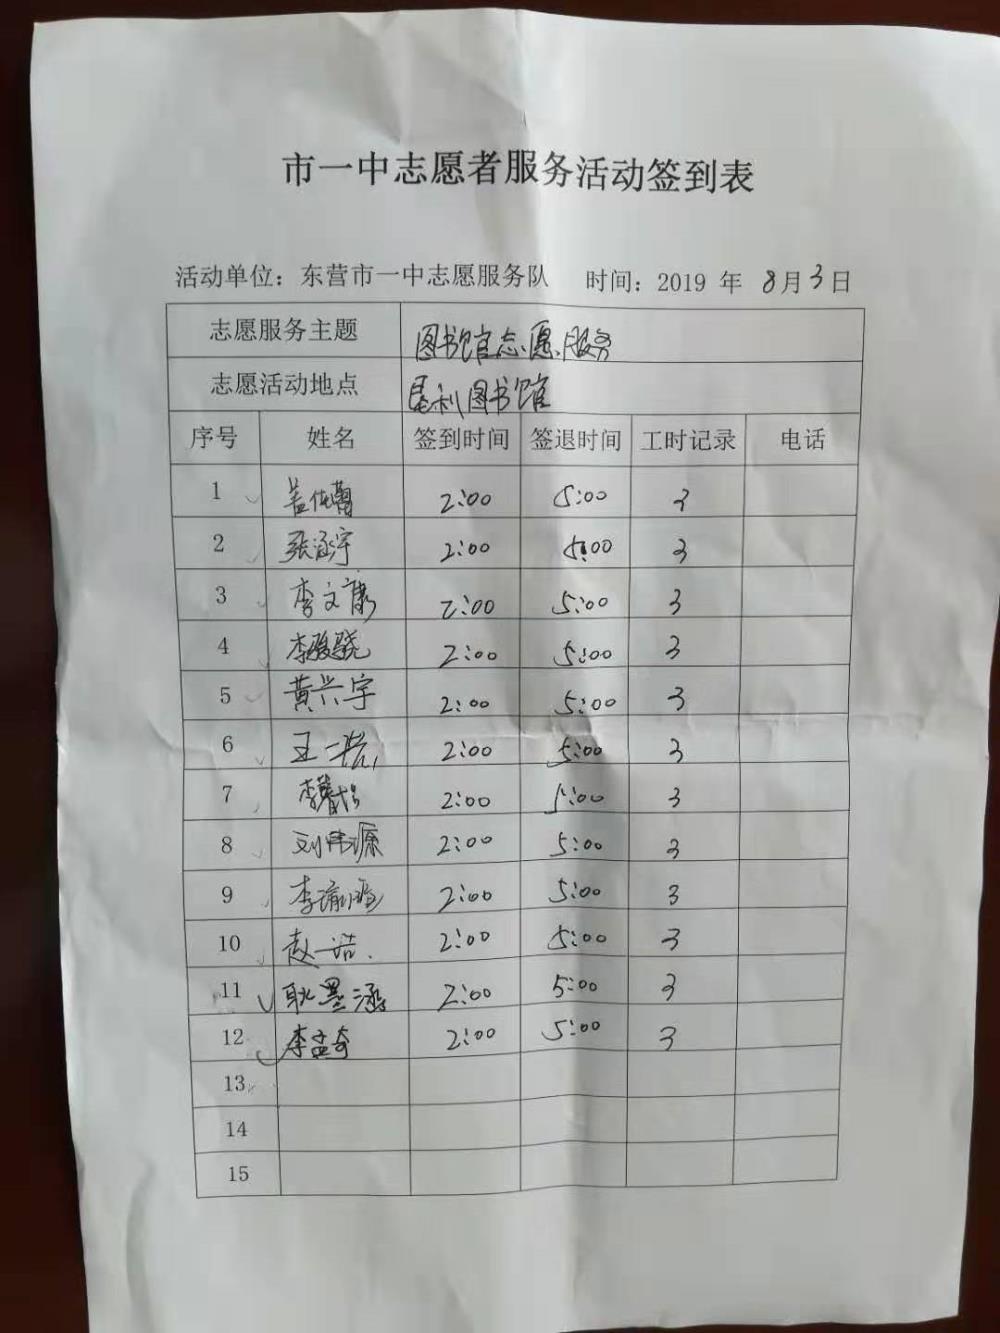 市一中志愿者服务活动签到表
活动单位：东营市一中志愿服务队 时间：2019 年 8月3日
志愿服务主题 图书馆志愿服务
志愿活动地点 垦利图书馆
序号 姓名 签到时间 签退时间 工时记录 电话
1 2:00 5:00 3
2 张涵宇 2:00 5:00 3
3 李文康 2:00 5:00 3
4 李骏骁 2:00 5:00 3
5 黄兴宇 2:00 5:00 3
6 王一 2:00 5:00 3
7 李 2:00 5:00 3
8 刘伟源 2:00 5:00 3
9 李 2:00 5:00 3
10 赵一诺 2:00 5:00 3
11 耿墨涵 2:00 5:00 3
12 李孟奇 2:00 5:00 3
13
14
15